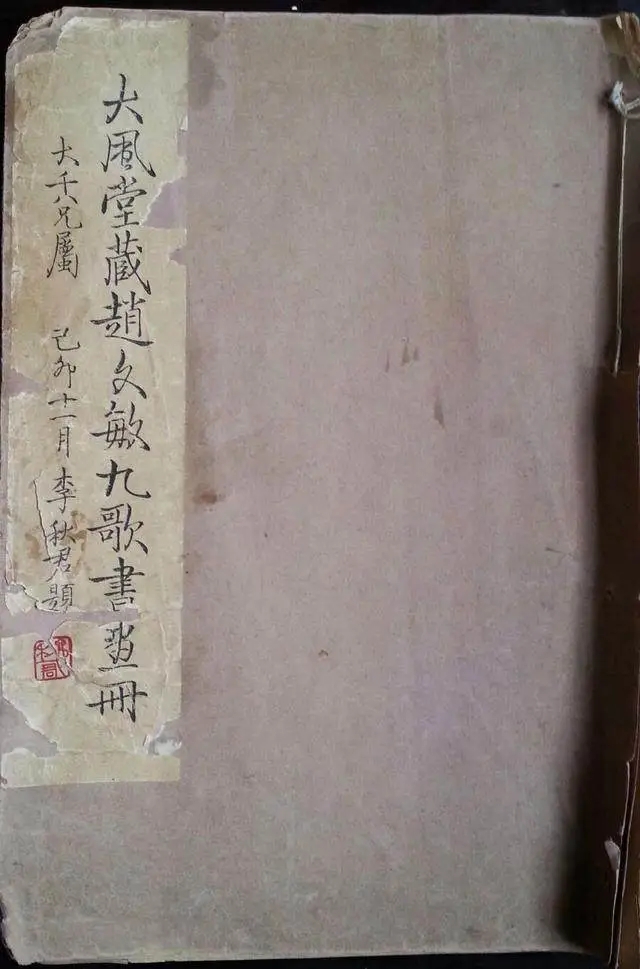 大風堂蔵趙文敏九歌書畫冊
大千八兄屬 己卯十一月李秋君題